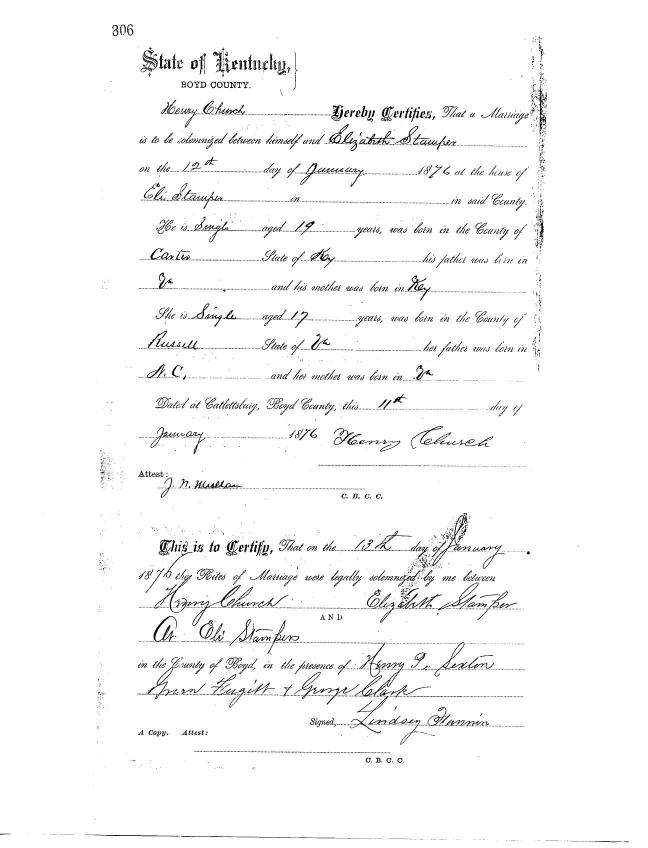 306
State of Kentucky,
BOYD COUNTY.
Henry Church Hereby Certifies, That a Marriage
is to be solemnized between himself and Elizabeth Stamper
on the 12th day of January 1876 at the house of
Eli Stamper in in said County.
He is Single aged 19 years, was born in the County of
Carter State of Ky his father was born in
Va and his mother was born in Key
She is Single aged 17 years, was born in the County of
Russell State of Va her father was born in
N. C. and her mother was born in Va
Dated at Catlettsburg, Boyd County, this 11th day of
January 1876 Henry Church
Attest:
J. N.
C. B. C. C.
This is to Certify, That on the 13th day of January
1876 the Rites of Marriage were legally solemnized by me between
Henry Church Elizabeth Stamper
AND
At Eli Stampers
in the County of Boyd, in the presence of Henry P. Sexton
Fugitt & George Clark
Signed, Lindsey Fannin
A Copy. Attest:
C. B. C. C.